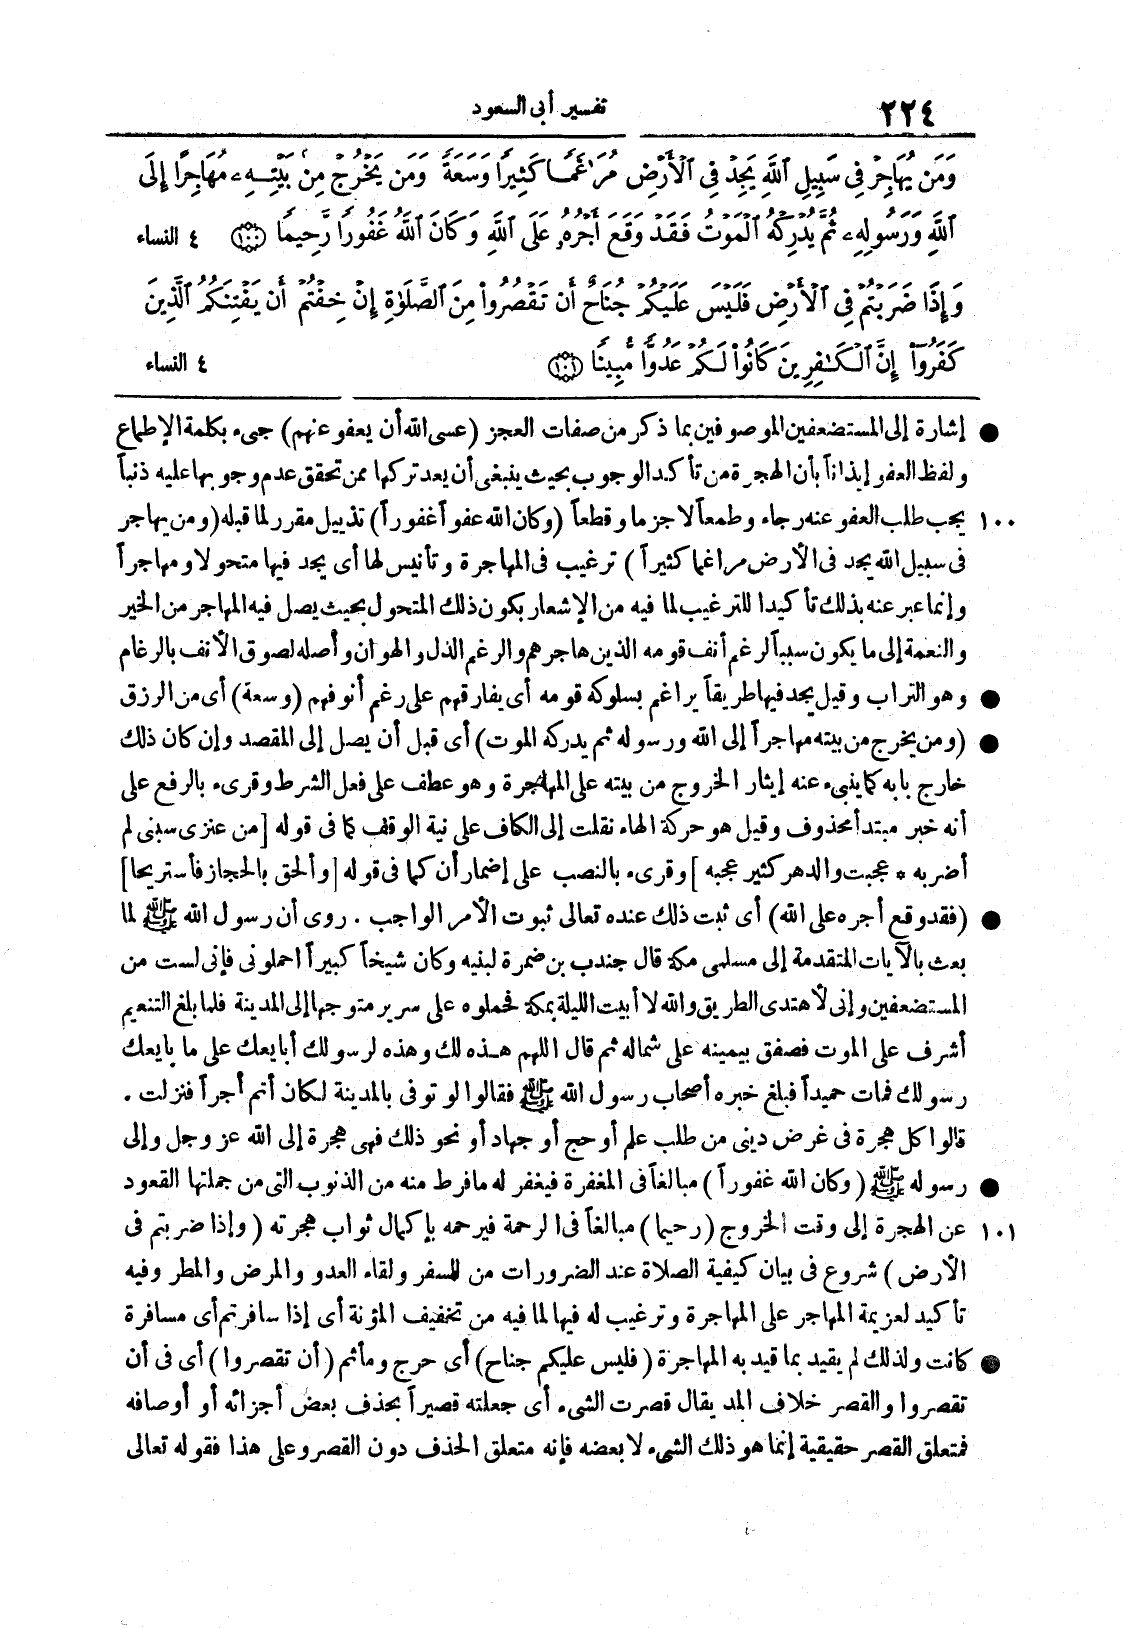 ٢٢٤ تفسير أبى السعود
وَمَن يُهَاجِرْ فِي سَبِيلِ ٱللَّهِ يَجِدْ فِي ٱلْأَرْضِ مُرَٰغَمًا كَثِيرًا وَسَعَةً وَمَن يَخْرُجْ مِنۢ بَيْتِهِۦ مُهَاجِرًا إِلَى
ٱللَّهِ وَرَسُولِهِۦ ثُمَّ يُدْرِكْهُ ٱلْمَوْتُ فَقَدْ وَقَعَ أَجْرُهُۥ عَلَى ٱللَّهِ وَكَانَ ٱللَّهُ غَفُورًا رَّحِيمًا ﴿١٠٠﴾ ٤ النساء
وَإِذَا ضَرَبْتُمْ فِي ٱلْأَرْضِ فَلَيْسَ عَلَيْكُمْ جُنَاحٌ أَن تَقْصُرُوا۟ مِنَ ٱلصَّلَوٰةِ إِنْ خِفْتُمْ أَن يَفْتِنَكُمُ ٱلَّذِينَ
كَفَرُوٓا۟ إِنَّ ٱلْكَٰفِرِينَ كَانُوا۟ لَكُمْ عَدُوًّا مُّبِينًا ﴿١٠١﴾ ٤ النساء
● إشارة إلى المستضعفين الموصوفين بما ذكر من صفات العجز (عسى الله أن يعفو عنهم) جىء بكلمة الإطماع
ولفظ العفو إيذاناً بأن الهجرة من تأكد الوجوب بحيث ينبغى أن يعد تركها ممن تحقق عدم وجوبها عليه ذنباً
١٠٠ يجب طلب العفو عنه رجاء وطمعاً لا جزما وقطعاً (وكان الله عفواً غفوراً) تذييل مقرر لما قبله (ومن يهاجر
فى سبيل الله يجد فى الأرض مراغما كثيراً) ترغيب فى المهاجرة وتأنيس لها أى يجد فيها متحولا ومهاجراً
وإنما عبر عنه بذلك تأكيدا للترغيب لما فيه من الإشعار بكون ذلك المتحول بحيث يصل فيه المهاجر من الخير
والنعمة إلى ما يكون سبباً لرغم أنف قومه الذين هاجرهم والرغم الذل والهوان وأصله لصوق الأنف بالرغام
● وهو التراب وقيل يجد فيها طريقاً يراغم بسلوكه قومه أى يفارقهم على رغم أنوفهم (وسعة) أى من الرزق
● (ومن يخرج من بيته مهاجراً إلى الله ورسوله ثم يدركه الموت) أى قبل أن يصل إلى المقصد وإن كان ذلك
خارج بابه كما ينبىء عنه إيثار الخروج من بيته على المهاجرة وهو عطف على فعل الشرط وقرىء بالرفع على
أنه خبر مبتدأ محذوف وقيل هو حركة الهاء نقلت إلى الكاف على نية الوقف كما فى قوله [من عنزى سبنى لم
أضربه * عجبت والدهر كثير عجبه] وقرىء بالنصب على إضمار أن كما فى قوله [وألحق بالحجاز فأستريحا]
● (فقد وقع أجره على الله) أى ثبت ذلك عنده تعالى ثبوت الأمر الواجب . روى أن رسول الله ﷺ لما
بعث بالآيات المتقدمة إلى مسلمى مكة قال جندب بن ضمرة لبنيه وكان شيخاً كبيراً احملونى فإنى لست من
المستضعفين وإنى لأهتدى الطريق والله لا أبيت الليلة بمكة فحملوه على سرير متوجها إلى المدينة فلما بلغ التنعيم
أشرف على الموت فصفق بيمينه على شماله ثم قال اللهم هذه لك وهذه لرسولك أبايعك على ما بايعك
رسولك فمات حميداً فبلغ خبره أصحاب رسول الله ﷺ فقالوا لو توفى بالمدينة لكان أتم أجراً فنزلت .
قالوا كل هجرة فى غرض دينى من طلب علم أو حج أو جهاد أو نحو ذلك فهى هجرة إلى الله عز وجل وإلى
● رسوله ﷺ (وكان الله غفوراً) مبالغاً فى المغفرة فيغفر له ما فرط منه من الذنوب التى من جملتها القعود
١٠١ عن الهجرة إلى وقت الخروج (رحيما) مبالغاً فى الرحمة فيرحمه بإكمال ثواب هجرته (وإذا ضربتم فى
الأرض) شروع فى بيان كيفية الصلاة عند الضرورات من السفر ولقاء العدو والمرض والمطر وفيه
تأكيد لعزيمة المهاجر على المهاجرة وترغيب له فيها لما فيه من تخفيف المؤنة أى إذا سافرتم أى مسافرة
● كانت ولذلك لم يقيد بما قيد به المهاجرة (فليس عليكم جناح) أى حرج ومأثم (أن تقصروا) أى فى أن
تقصروا والقصر خلاف المد يقال قصرت الشىء أى جعلته قصيراً بحذف بعض أجزائه أو أوصافه
فمتعلق القصر حقيقية إنما هو ذلك الشىء لا بعضه فإنه متعلق الحذف دون القصر وعلى هذا فقوله تعالى